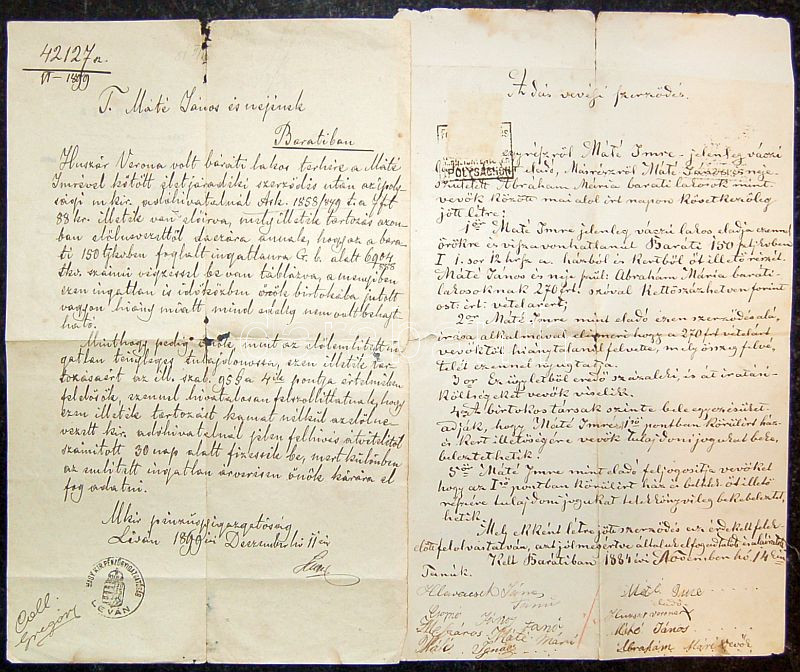 42127 a.
VI - 1899
T. Máté János és nejének
Baratiban
Huszár Verona volt baráti lakos terhére a Máté
Imrével kötött életjáradéki szerződés után az ipoly-
sági m kir. adóhivatalnál
88 kr. illeték van előírva, mely illeték tartozás azon-
ban előlvezettől daczára annak, hogy az a bara-
ti 150 tjkvben foglalt ingatlanra C. 6. alatt 6904
tkv. számú végzéssel be van táblázva, a mennyiben
ezen ingatlan is időközben önök birtokába jutott
vagyon hiány miatt, mind ezideig nem volt behajt-
ható.
Minthogy pedig önök, mint az előlemlített in-
gatlan tényleges tulajdonosai, ezen illeték tar-
tozásért az ill. szab. 95 § a 4ik pontja értelmében
felelősök, ezennel hivatalosan felszóllíttatnak, hogy
ezen illeték tartozást kamat nélkül az előlne-
vezett kir. adóhivatalnál jelen felhívás átvételétől
számított 30 nap alatt fizessék be, mert különben
az említett ingatlan árverésen önök kárára el
fog adatni.
M kir pénzügyigazgatóság
Léván 1899 évi Dezember hó 11 én
LÉVÁN
Coll.
Grigorz
Adás vevési szerződés.
POLYSÁGHON
egyrészről Máté Imre jelenleg váczi
lakos mint eladó, Másrészről Máté János és neje
született Abrahám Mária barati lakosok mint
vevők között mai alól írt napon következőleg
jött létre;
1ör Máté Imre jelenleg váczi lakos eladja ezennel
örökre és visszavonhatlanul Baráti 150 sz tjkvben
I 1. sor 12 hrsz a. házból és kertből öt illető részét
Máté János és neje szül: Abrahám Mária baráti-
lakosoknak 270 frt. szóval Kettőszázhetven forint
ost: ért: vételárért,
2or Máté Imre mint eladó ezen szerződés alá-
írása alkalmával elismeri hogy a 270 frt vételárt
vevőktől hiánytalanul felvette, mely összeg felvé-
telét ezennel nyugtatja.
3or Ez ügyletből eredő százaléki, és átíratási
költségeket vevők viselik.
4er A birtokostársak szinte bele egyezésüket
adják, hogy Máté Imre 1ső pontban körülírt ház-
és Kert illetőségére vevők tulajdoni jogukat beke-
beleztethetik.
5ör Máté Imre mint eladó feljogosítja vevőket
hogy az I ső pontban körülírt ház és beltelek őt illető
részére tulajdoni jogukat telekkönyvileg bekebeleztet-
hetik.
Mely ekként létre jött szerződés az érdekelt felek
előtt felolvastatván, azt jól megértve általuk elfogadtatott és aláíratott
Kelt Baratiban 1884 évi November hó 14 én
Tanúk.
Hlavacsek János
tanú
János tanú
Mészáros Máté
Máté Imre
eladó
Huszár Verona
Máté János
Abrahám Mári vevők